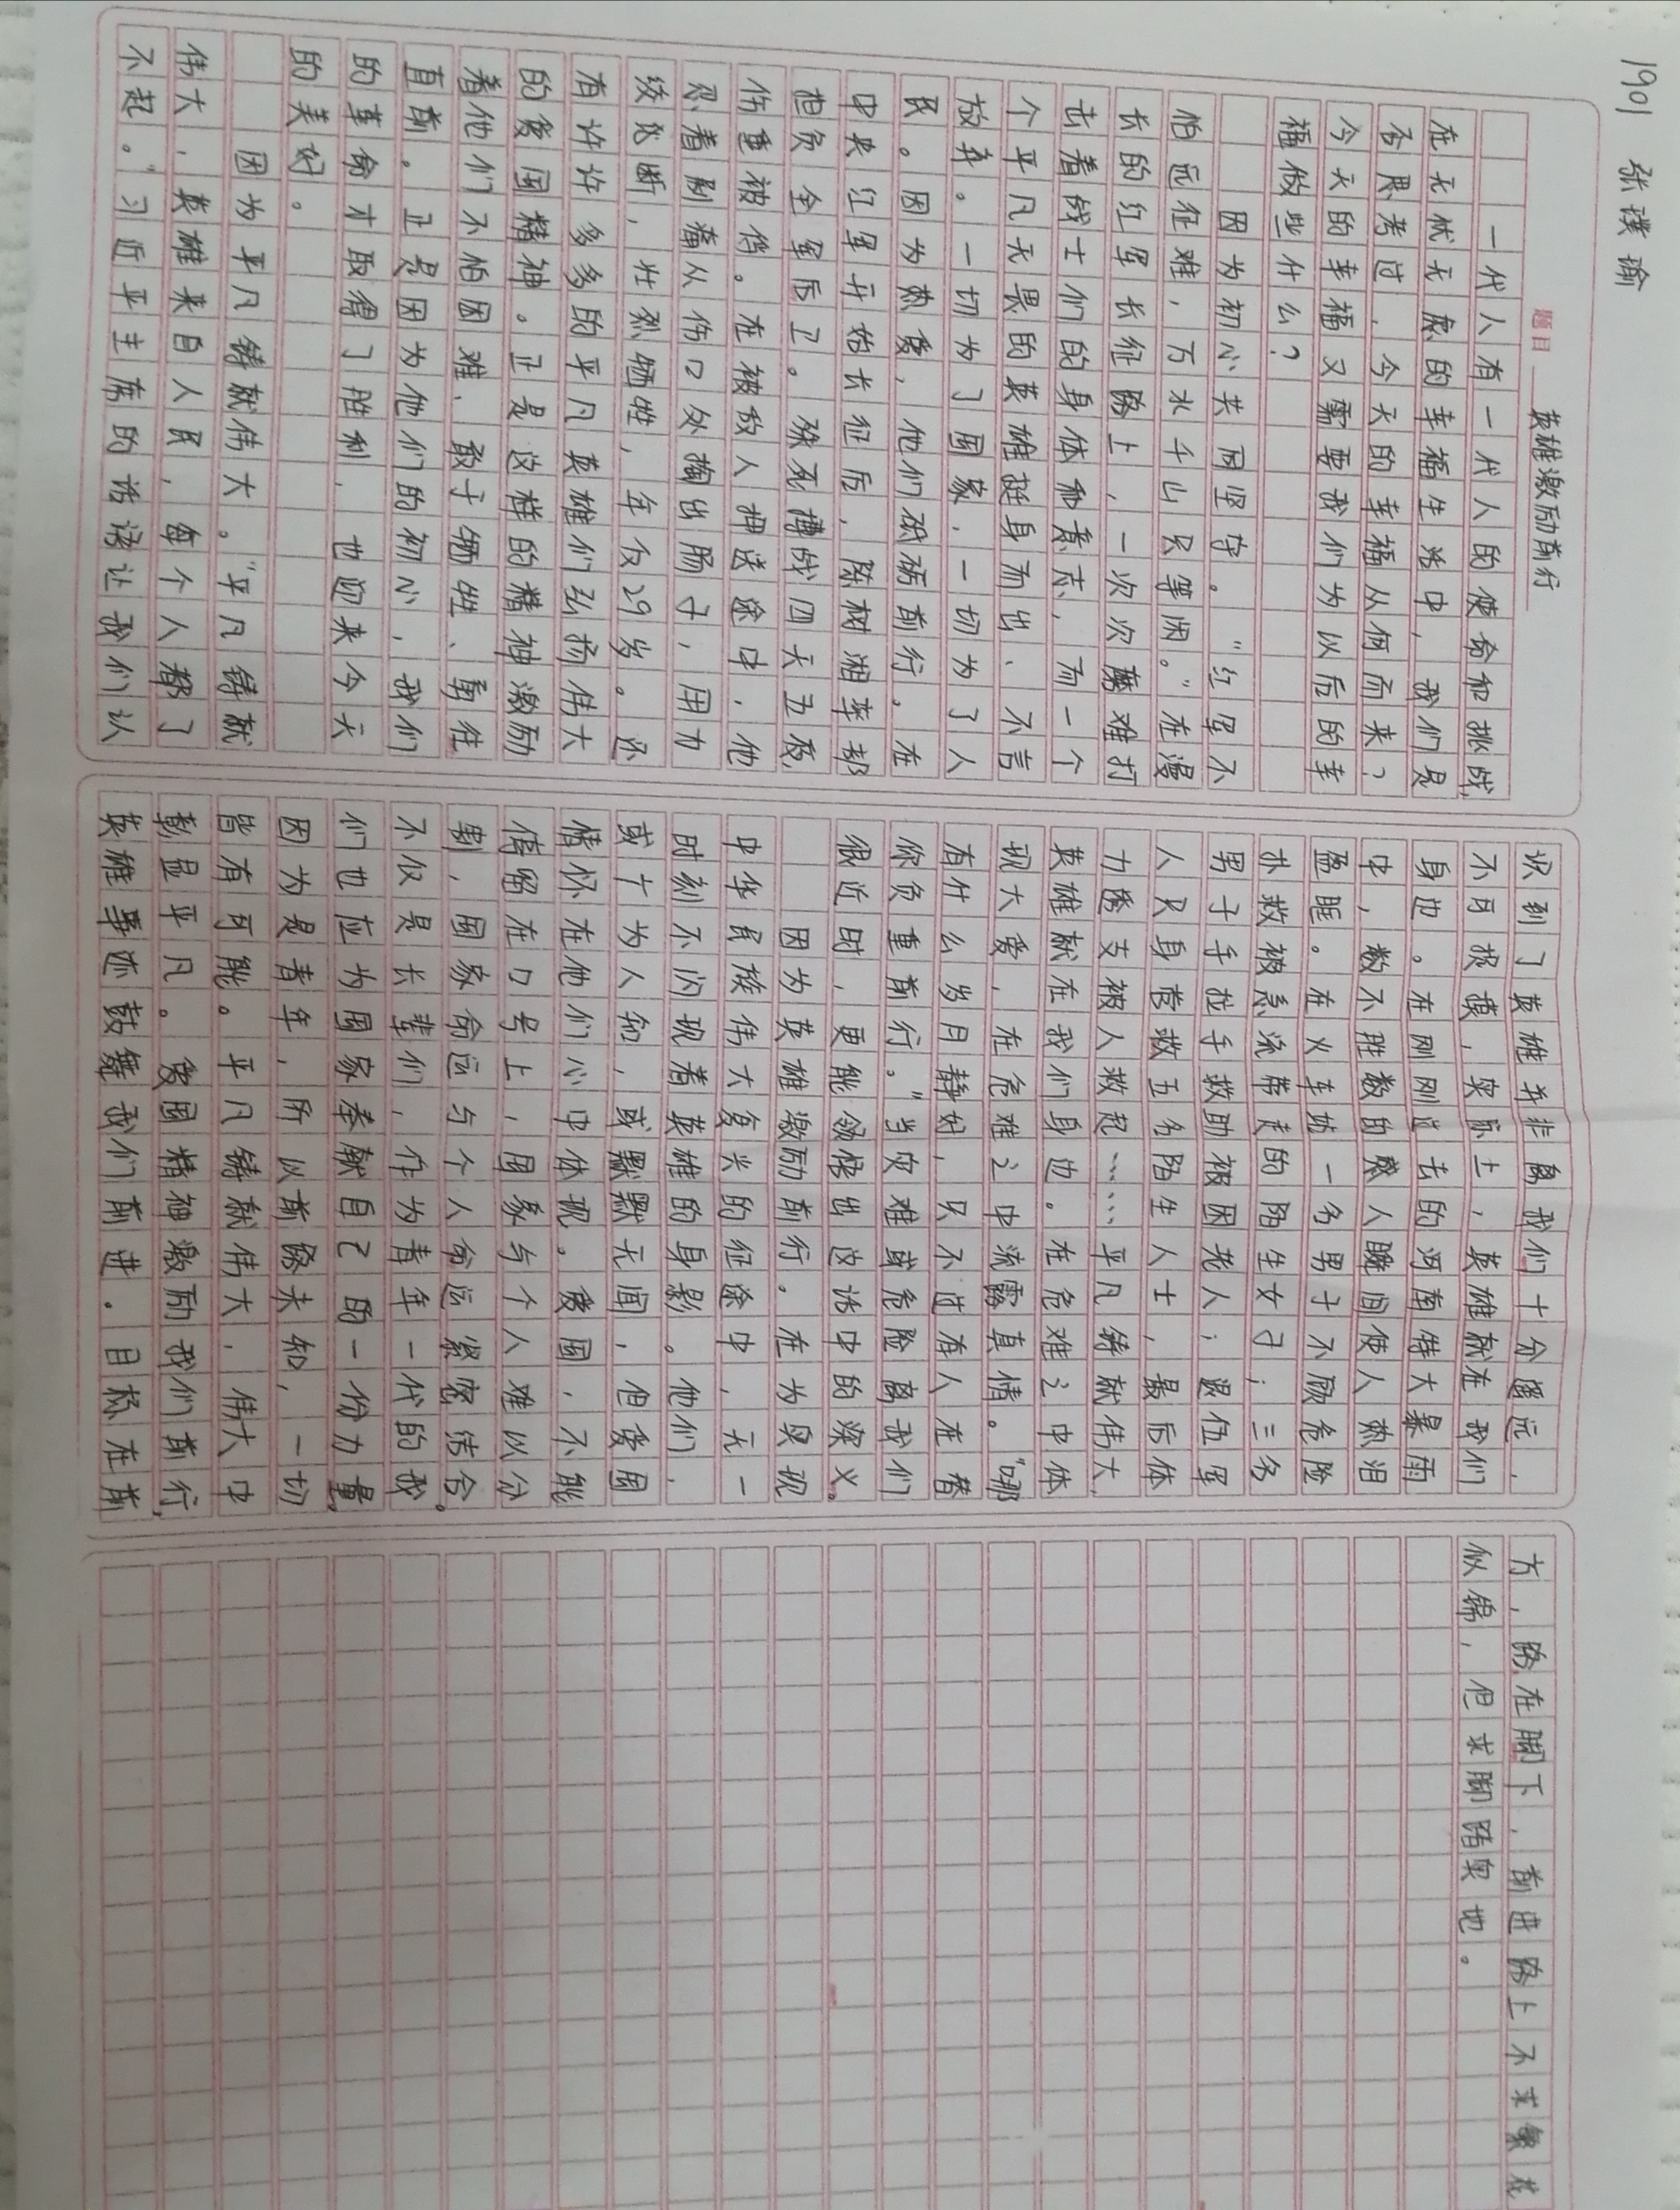 1901 张璞瑜
题目 英雄激励前行
一代人有一代人的使命和挑战,
在无忧无虑的幸福生活中,我们是
否思考过,今天的幸福从何而来?
今天的幸福又需要我们为以后的幸
福做些什么?
因为初心共同坚守。“红军不
怕远征难,万水千山只等闲。”在漫
长的红军长征路上,一次次磨难打
击着战士们的身体和意志,而一个
个平凡无畏的英雄挺身而出、不言
放弃。一切为了国家,一切为了人
民。因为热爱,他们砥砺前行。在
中央红军开始长征后,陈树湘率部
担负全军后卫。殊死搏战四天五夜,
伤重被俘。在被敌人押送途中,他
忍着剧痛从伤口处掏出肠子,用力
绞断,壮烈牺牲,年仅29岁。还
有许许多多的平凡英雄们弘扬伟大
的爱国精神。正是这样的精神激励
着他们不怕困难、敢于牺牲、勇往
直前。正是因为他们的初心,我们
的革命才取得了胜利,也迎来今天
的美好。
因为平凡铸就伟大。“平凡铸就
伟大,英雄来自人民,每个人都了
不起。”习近平主席的话语让我们认
识到了英雄并非离我们十分遥远,
不可捉摸,实际上,英雄就在我们
身边。在刚刚过去的河南特大暴雨
中,数不胜数的感人瞬间使人热泪
盈眶。在火车站一名男子不顾危险
求救被急流带走的陌生女子;三名
男子手拉手救助被困老人;退伍军
人只身营救五名陌生人士,最后体
力透支被人救起……平凡铸就伟大,
英雄献在我们身边。在危难之中体
现大爱,在危难之中流露真情。“哪
有什么岁月静好,只不过有人在替
你负重前行。”当灾难或危险离我们
很近时,更能够悟出这话中的深义。
因为英雄激励前行。在为实现
中华民族伟大复兴的征途中,无一
时刻不闪现着英雄的身影。他们,
或广为人知,或默默无闻,但爱国
情怀在他们心中体现。爱国,不能
停留在口号上,国家与个人难以分
割,国家命运与个人命运紧密结合。
不仅是长辈们,作为青年一代的我
们也应为国家奉献自己的一份力量,
因为是青年,所以前路未知,一切
皆有可能。平凡铸就伟大,伟大中
彰显平凡。爱国精神激励我们前行,
英雄事迹鼓舞我们前进。目标在前
方,路在脚下,前进路上不求繁花
似锦,但求脚踏实地。